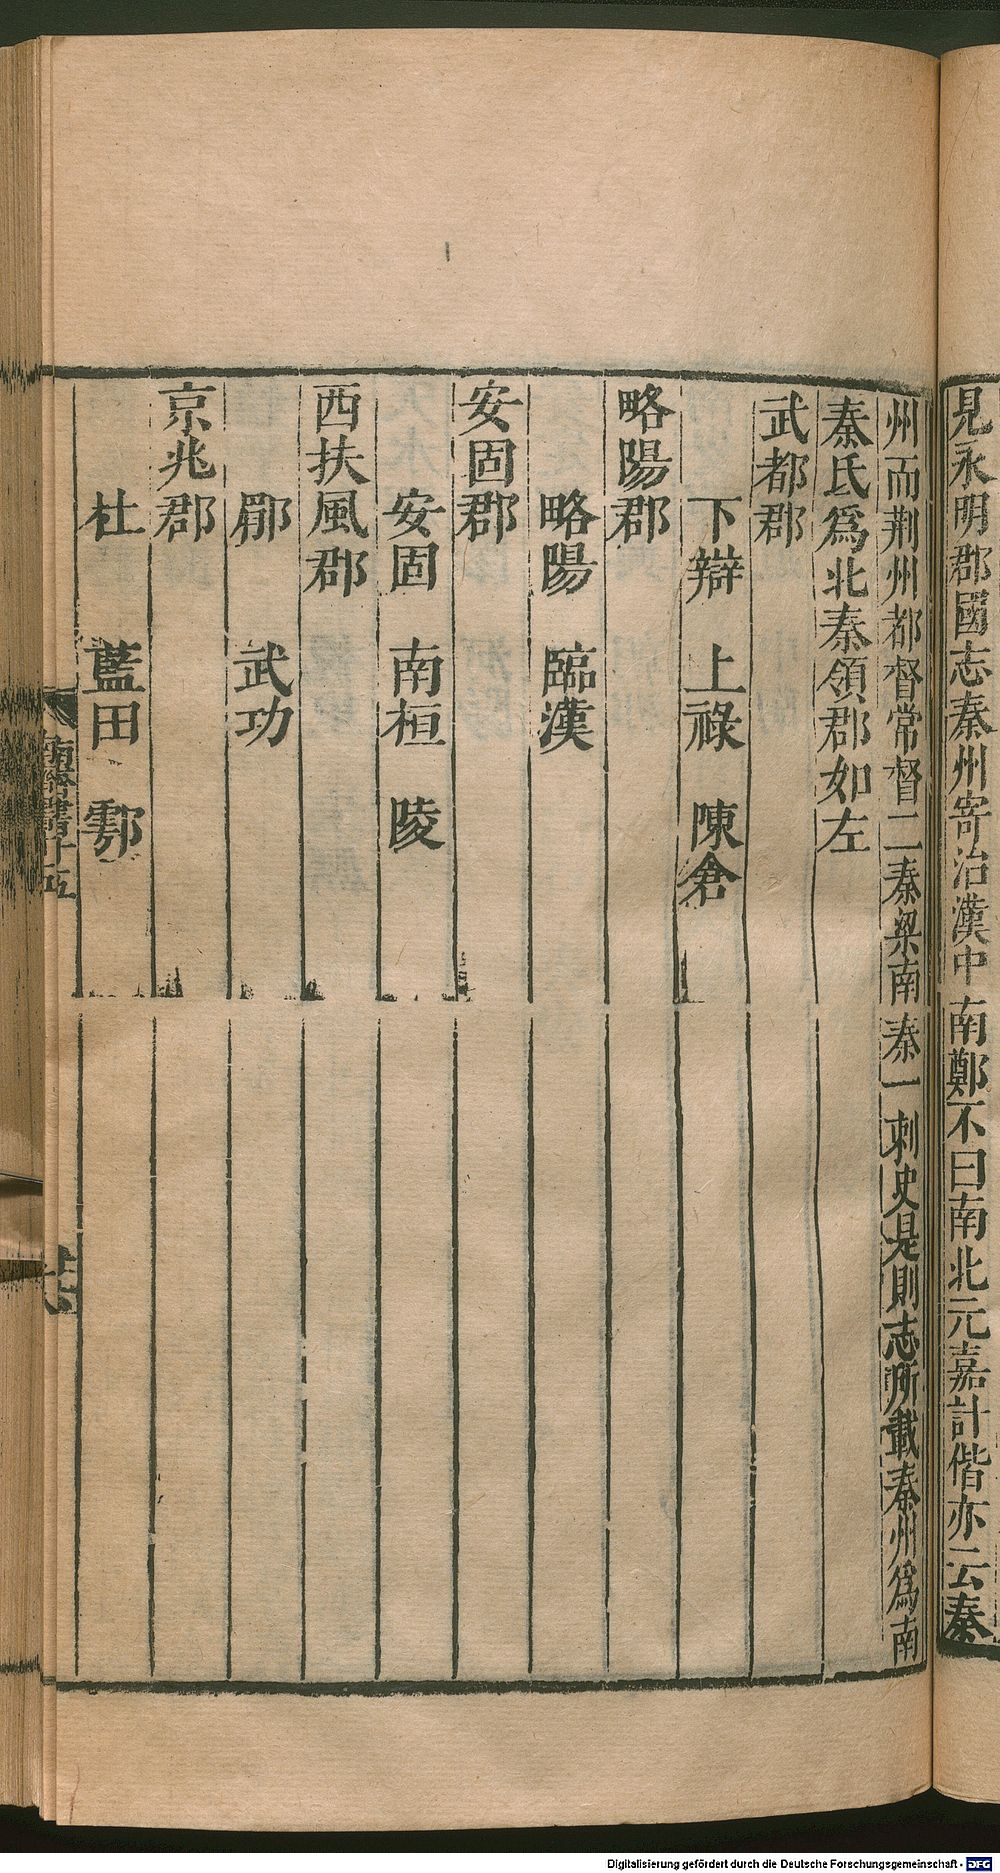 見永明郡國志秦州寄治漢中南鄭不曰南北元嘉計偕亦云秦
州而荆州都督常督二秦梁南秦一刺史是則志所載秦州爲南
秦氏爲北秦領郡如左
武都郡
下辯 上祿 陳倉
略陽郡
略陽 臨漢
安固郡
安固 南桓 陵
西扶風郡
郿 武功
京兆郡
杜 藍田 鄠
南齊書十五
Digitalisierung gefördert durch die Deutsche Forschungsgemeinschaft - DFG